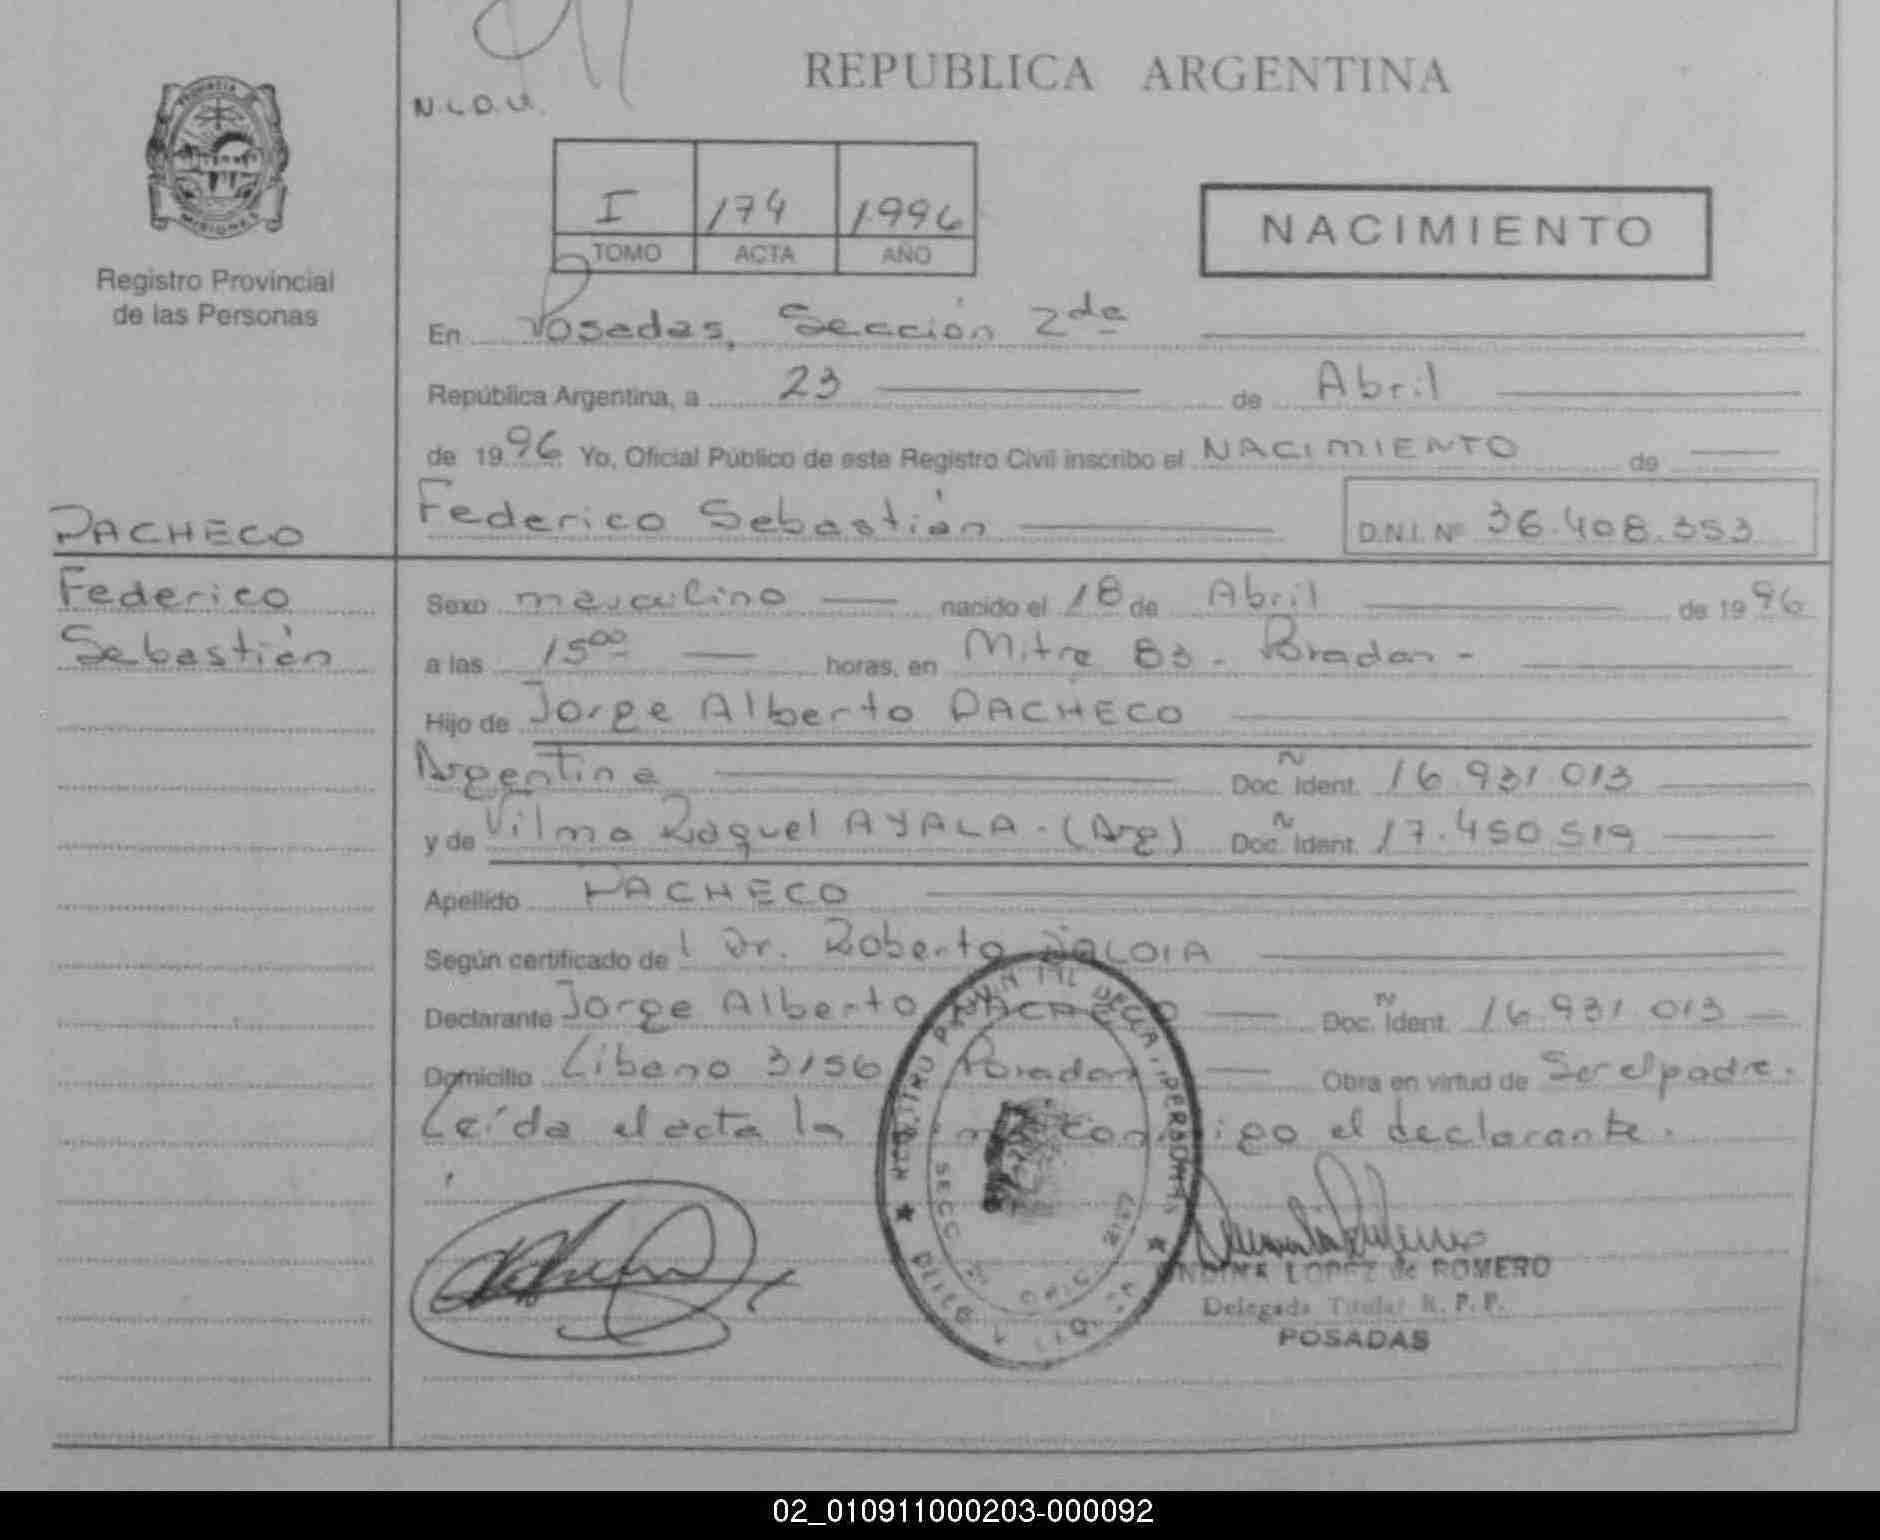 REPUBLICA ARGENTINA
PROVINCIA DE
MISIONES
Registro Provincial
de las Personas
N.L.O.U.
I 174 1996
TOMO ACTA AÑO
NACIMIENTO
En Posadas, Sección 2da
República Argentina, a 23 de Abril
de 1996 Yo, Oficial Público de este Registro Civil inscribo el NACIMIENTO de
PACHECO
Federico Sebastián D.N.I. Nº 36.408.353
Federico
Sebastián
Sexo masculino nacido el 18 de Abril de 1996
a las 15 00 horas, en Mitre 83 - Posadas -
Hijo de Jorge Alberto PACHECO
Argentina Doc. Ident. 16.931.013
y de Vilma Raquel AYALA - (Arg) Doc. Ident. 17.450.519
Apellido PACHECO
Según certificado de l Dr. Roberto D'ALOIA
Declarante Jorge Alberto PACHECO Doc. Ident. 16.931.013
Domicilio Libano 3156 Posadas Obra en virtud de Ser el padre.
Leída el acta la conmigo el declarante.
SECC
LOPEZ de ROMERO
Delegada Titular R. P. P.
POSADAS
02_010911000203-000092